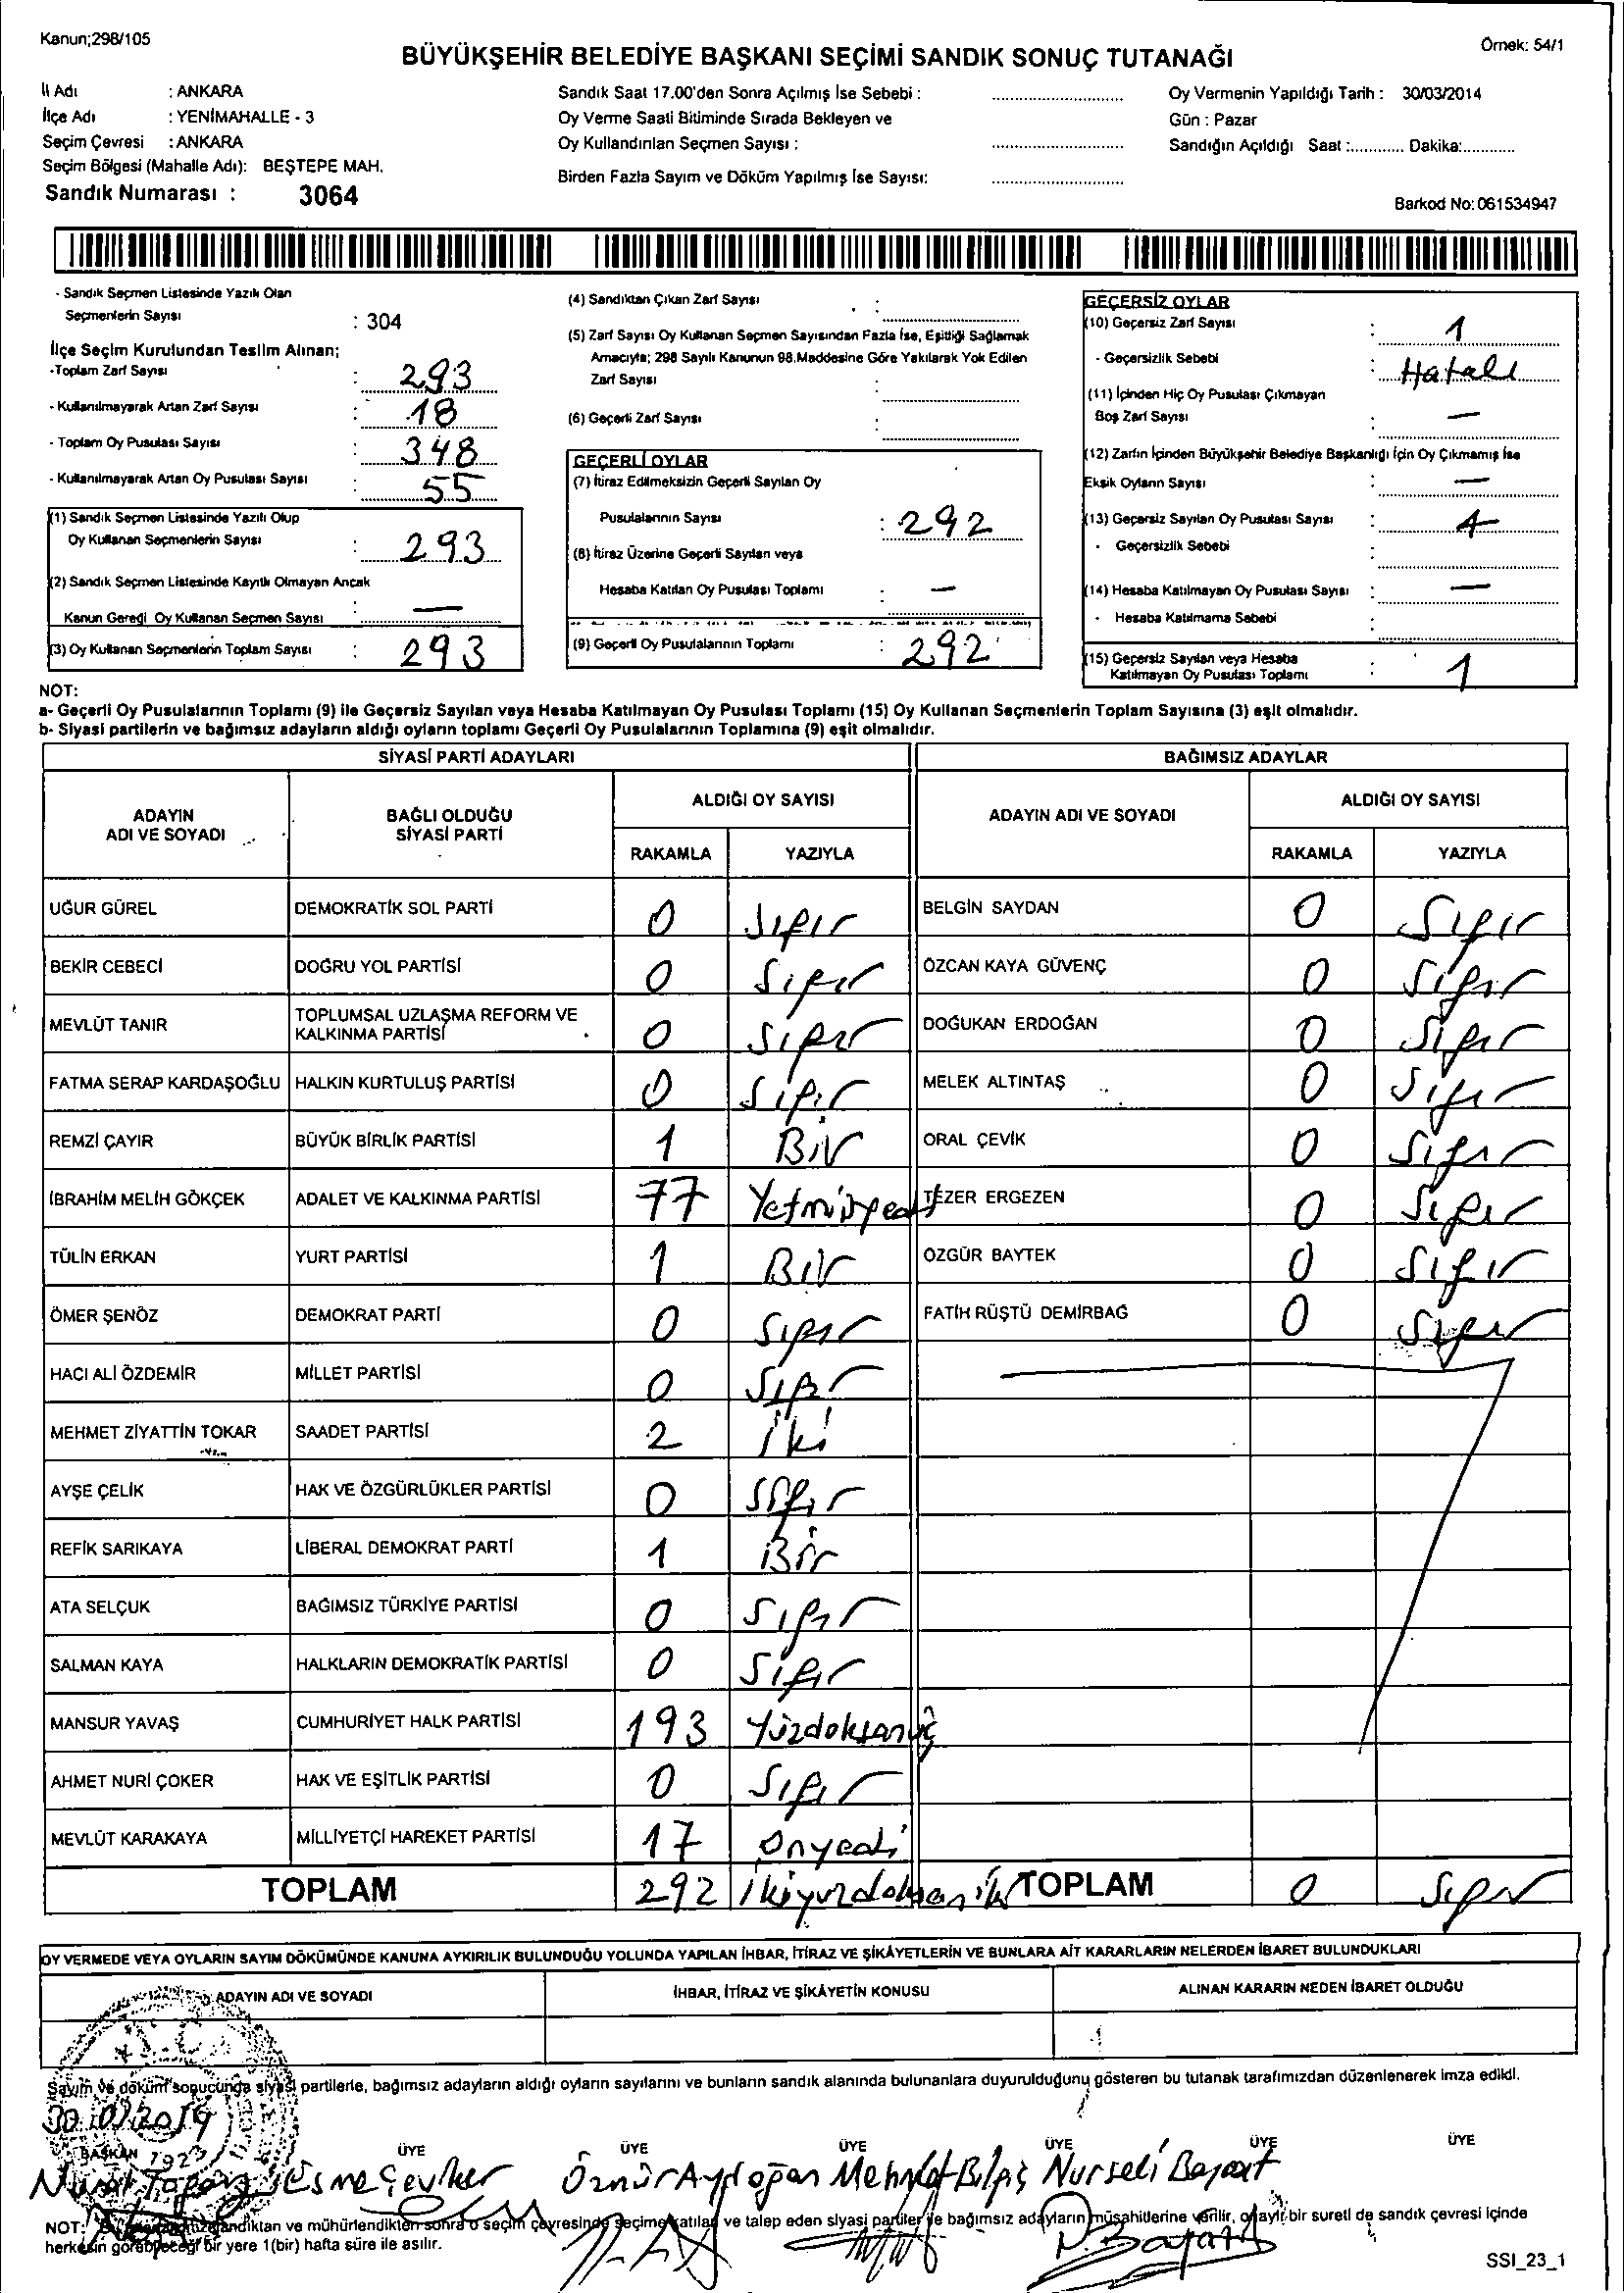 Kanun;298/105
Örnek: 54/1
BÜYÜKŞEHİR BELEDİYE BAŞKANI SEÇİMİ SANDIK SONUÇ TUTANAĞI
İl Adı : ANKARA
İlçe Adı : YENİMAHALLE - 3
Seçim Çevresi : ANKARA
Seçim Bölgesi (Mahalle Adı): BEŞTEPE MAH.
Sandık Numarası : 3064
Sandık Saat 17.00'den Sonra Açılmış İse Sebebi :
Oy Verme Saati Bitiminde Sırada Bekleyen ve
Oy Kullandırılan Seçmen Sayısı :
Birden Fazla Sayım ve Döküm Yapılmış İse Sayısı:
Oy Vermenin Yapıldığı Tarih : 30/03/2014
Gün : Pazar
Sandığın Açıldığı Saat :............ Dakika:............
Barkod No: 061534947
- Sandık Seçmen Listesinde Yazılı Olan
Seçmenlerin Sayısı : 304
İlçe Seçim Kurulundan Teslim Alınan;
-Toplam Zarf Sayısı : 293
- Kullanılmayarak Artan Zarf Sayısı : 18
- Toplam Oy Pusulası Sayısı : 348
- Kullanılmayarak Artan Oy Pusulası Sayısı : 55
(1) Sandık Seçmen Listesinde Yazılı Olup
Oy Kullanan Seçmenlerin Sayısı : 293
(2) Sandık Seçmen Listesinde Kayıtlı Olmayan Ancak
Kanun Gereği Oy Kullanan Seçmen Sayısı : —
(3) Oy Kullanan Seçmenlerin Toplam Sayısı : 293
(4) Sandıktan Çıkan Zarf Sayısı :
(5) Zarf Sayısı Oy Kullanan Seçmen Sayısından Fazla İse, Eşitliği Sağlamak
Amacıyla; 298 Sayılı Kanunun 98.Maddesine Göre Yakılarak Yok Edilen
Zarf Sayısı :
(6) Geçerli Zarf Sayısı :
GEÇERLİ OYLAR
(7) İtiraz Edilmeksizin Geçerli Sayılan Oy
Pusulalarının Sayısı : 292
(8) İtiraz Üzerine Geçerli Sayılan veya
Hesaba Katılan Oy Pusulası Toplamı : —
(9) Geçerli Oy Pusulalarının Toplamı : 292
GEÇERSİZ OYLAR
(10) Geçersiz Zarf Sayısı : 1
- Geçersizlik Sebebi : Hatalı
(11) İçinden Hiç Oy Pusulası Çıkmayan
Boş Zarf Sayısı : —
(12) Zarfın İçinden Büyükşehir Belediye Başkanlığı İçin Oy Çıkmamış İse
Eksik Oyların Sayısı : —
(13) Geçersiz Sayılan Oy Pusulası Sayısı :
- Geçersizlik Sebebi :
(14) Hesaba Katılmayan Oy Pusulası Sayısı : —
- Hesaba Katılmama Sebebi :
(15) Geçersiz Sayılan veya Hesaba
Katılmayan Oy Pusulası Toplamı : 1
NOT:
a- Geçerli Oy Pusulalarının Toplamı (9) ile Geçersiz Sayılan veya Hesaba Katılmayan Oy Pusulası Toplamı (15) Oy Kullanan Seçmenlerin Toplam Sayısına (3) eşit olmalıdır.
b- Siyasi partilerin ve bağımsız adayların aldığı oyların toplamı Geçerli Oy Pusulalarının Toplamına (9) eşit olmalıdır.
SİYASİ PARTİ ADAYLARI BAĞIMSIZ ADAYLAR
ADAYIN ADI VE SOYADI BAĞLI OLDUĞU SİYASİ PARTİ ALDIĞI OY SAYISI ADAYIN ADI VE SOYADI ALDIĞI OY SAYISI
RAKAMLA YAZIYLA RAKAMLA YAZIYLA
UĞUR GÜREL DEMOKRATİK SOL PARTİ 0 Sıfır BELGİN SAYDAN 0 Sıfır
BEKİR CEBECİ DOĞRU YOL PARTİSİ 0 Sıfır ÖZCAN KAYA GÜVENÇ 0 Sıfır
MEVLÜT TANIR TOPLUMSAL UZLAŞMA REFORM VE KALKINMA PARTİSİ 0 Sıfır DOĞUKAN ERDOĞAN 0 Sıfır
FATMA SERAP KARDAŞOĞLU HALKIN KURTULUŞ PARTİSİ 0 Sıfır MELEK ALTINTAŞ 0 Sıfır
REMZİ ÇAYIR BÜYÜK BİRLİK PARTİSİ 1 Bir ORAL ÇEVİK 0 Sıfır
İBRAHİM MELİH GÖKÇEK ADALET VE KALKINMA PARTİSİ 77 Yetmişyedi TEZER ERGEZEN 0 Sıfır
TÜLİN ERKAN YURT PARTİSİ 1 Bir ÖZGÜR BAYTEK 0 Sıfır
ÖMER ŞENÖZ DEMOKRAT PARTİ 0 Sıfır FATİH RÜŞTÜ DEMİRBAĞ 0 Sıfır
HACI ALİ ÖZDEMİR MİLLET PARTİSİ 0 Sıfır
MEHMET ZİYATTİN TOKAR SAADET PARTİSİ 2 İki
AYŞE ÇELİK HAK VE ÖZGÜRLÜKLER PARTİSİ 0 Sıfır
REFİK SARIKAYA LİBERAL DEMOKRAT PARTİ 1 Bir
ATA SELÇUK BAĞIMSIZ TÜRKİYE PARTİSİ 0 Sıfır
SALMAN KAYA HALKLARIN DEMOKRATİK PARTİSİ 0 Sıfır
MANSUR YAVAŞ CUMHURİYET HALK PARTİSİ 193 Yüzdoksanüç
AHMET NURİ ÇOKER HAK VE EŞİTLİK PARTİSİ 0 Sıfır
MEVLÜT KARAKAYA MİLLİYETÇİ HAREKET PARTİSİ 17 Onyedi
TOPLAM 292 İkiyüzdoksaniki TOPLAM 0 Sıfır
OY VERMEDE VEYA OYLARIN SAYIM DÖKÜMÜNDE KANUNA AYKIRILIK BULUNDUĞU YOLUNDA YAPILAN İHBAR, İTİRAZ VE ŞİKÂYETLERİN VE BUNLARA AİT KARARLARIN NELERDEN İBARET BULUNDUKLARI
ADAYIN ADI VE SOYADI İHBAR, İTİRAZ VE ŞİKÂYETİN KONUSU ALINAN KARARIN NEDEN İBARET OLDUĞU
Sayım ve döküm sonucunda siyasi partilerle, bağımsız adayların aldığı oyların sayılarını ve bunların sandık alanında bulunanlara duyurulduğunu gösteren bu tutanak tarafımızdan düzenlenerek imza edildi.
BAŞKAN ÜYE ÜYE ÜYE ÜYE ÜYE ÜYE
Esme Çevker Öznür Aydoğan Mehmet Bilgiç Nurseli Bayart
NOT: sonra o seçim çevresinde seçime katılan ve talep eden siyasi partiler ile bağımsız adayların müşahitlerine verilir, onaylı bir sureti de sandık çevresi içinde
herkesin görebileceği bir yere 1(bir) hafta süre ile asılır.
SSI_23_1